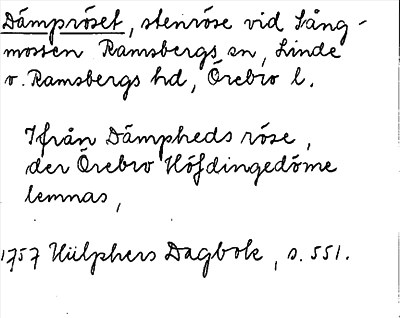 Dämpröset, stenröse vid Lång-
mossen Ramsbergs sn, Linde
o. Ramsbergs hd, Örebro l.
Ifrån Dämpheds röse,
der Örebro Höfdingedöme
lemnas,
1757 Hülphers Dagbok, s. 551.